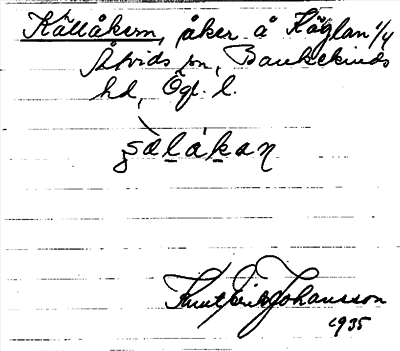 Källåkern, åker å Käglan 1/4
Åtvids sn, Bankekinds
hd, Ögl. l.
Knut Erik Johansson
1935